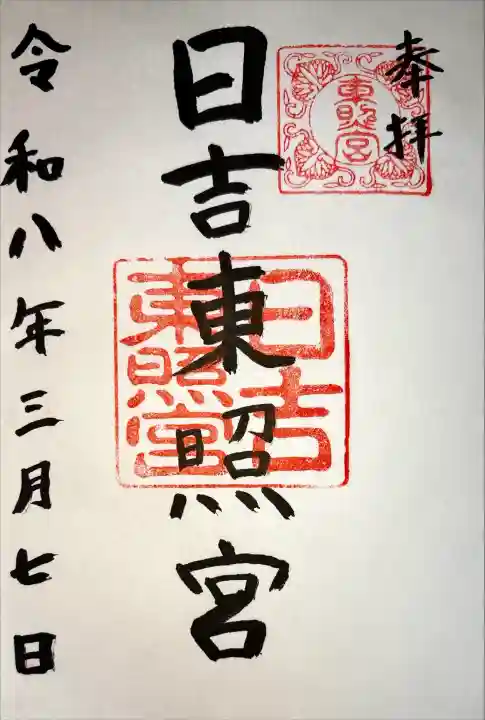 奉拝
東照宮
日吉東照宮
日吉東照宮
令和八年三月七日